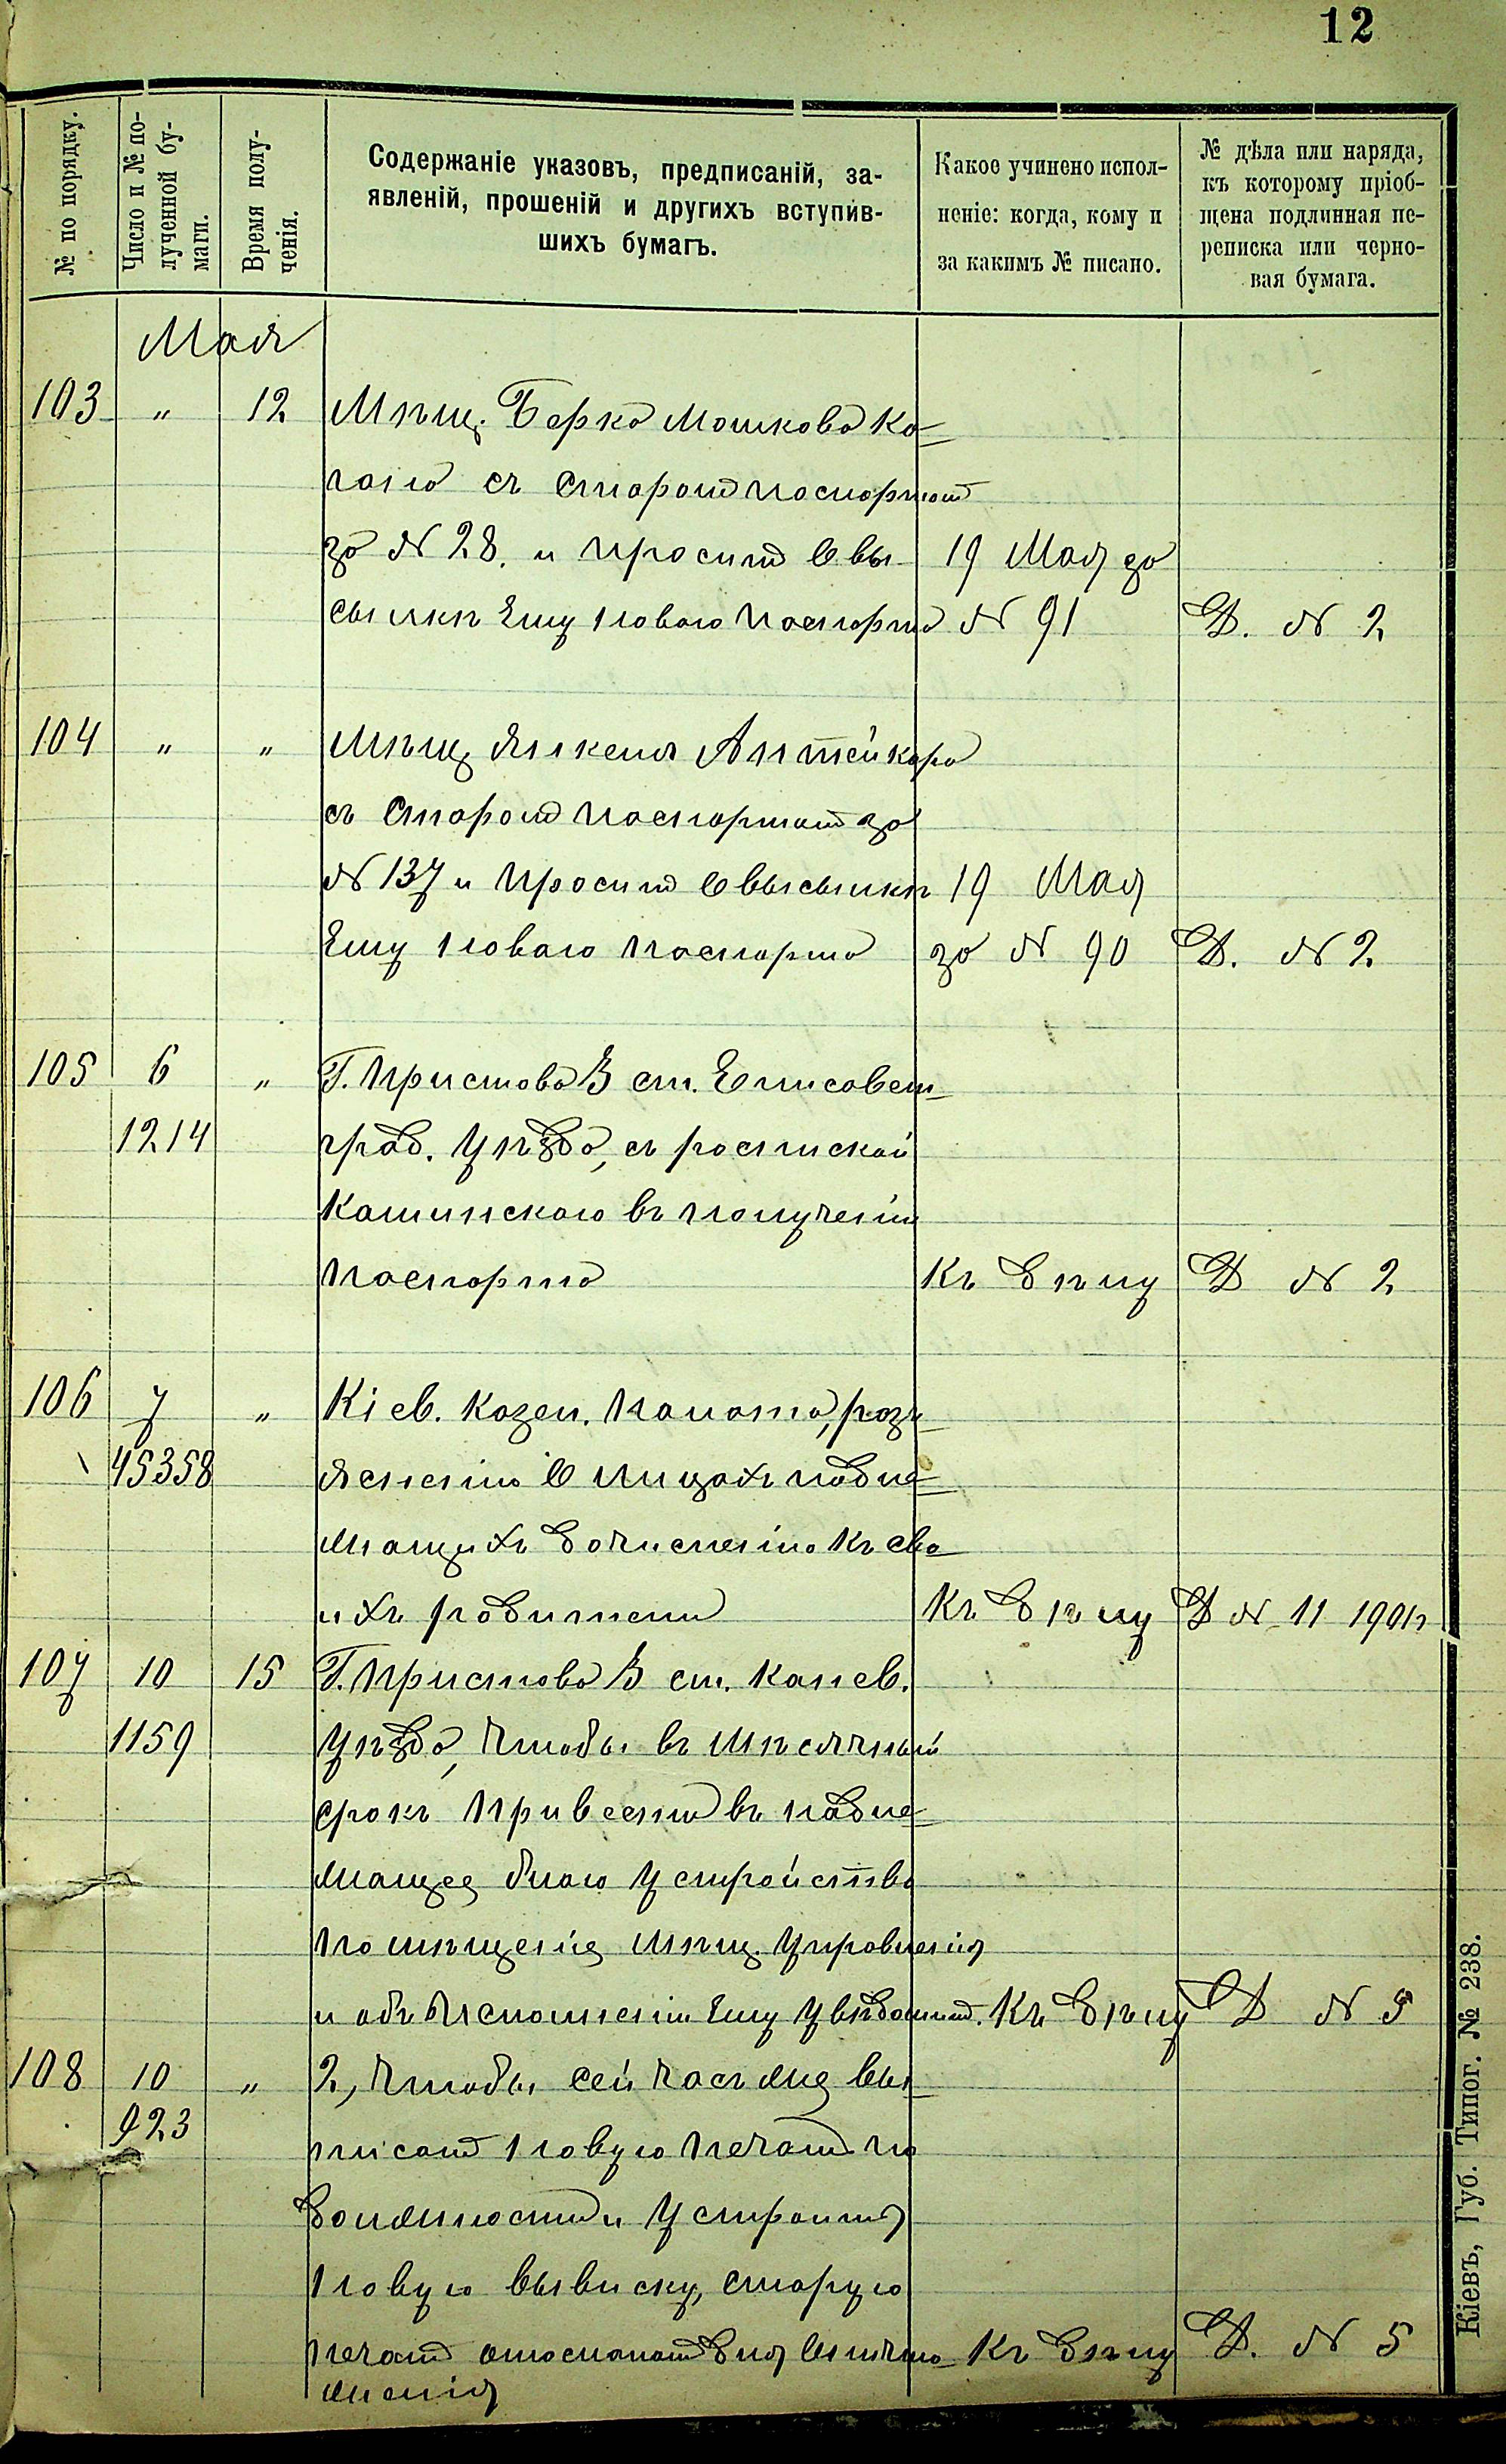 12
№ по порядку.
Число и № по-
лученной бу-
маги.
Время полу-
ченія.
Содержаніе указовъ, предписаній, за-
явленій, прошеній и другихъ вступив-
шихъ бумагъ.
Какое учинено испол-
неніе: когда, кому и
за какимъ № писано.
№ дѣла или наряда,
къ которому пріоб-
щена подлинная пе-
реписка или черно-
вая бумага.
Мая
103 " 12 Мѣщ. Берко Мошкова Ко-
гана съ старом паспортом
за № 28. и просит о вы- 19 Мая за
сылкѣ ему новаго паспорта № 91 Д. № 2
104 " " Мѣщ. Янкеля Аптейкаря
съ старом паспортом за
№ 137 и просит о высылкѣ 19 Мая
ему новаго паспорта за № 90 Д. № 2
105 6 " Г. Пристова 3 ст. Елисавет-
1214 град. уѣзда, съ роспиской
Каминскаго въ полученіи
паспорта Къ дѣлу Д № 2
106 7 " Кіев. Казен. Палата, разъ-
45358 ясненію о лицахъ подле-
жащихъ дочисленію къ сво-
ихъ родителей Къ дѣлу Д № 11 1901г
107 10 15 Г. Пристова 3 ст. Канев.
1159 уѣзда, чтобы въ мѣсячный
срокъ привести въ подле-
жащее благоустройство
помѣщенія мѣщ. управленія
и объ исполненіи ему увѣдомит. Къ дѣлу Д № 5
108 10 " 2, чтобы сейчасъ же вы-
923 писат новую печат по
должности и устроит
новую вывиску, старую
печат отослат для уничто- Къ дѣлу Д. № 5
женія
Кіевъ, Губ. Типог. № 238.